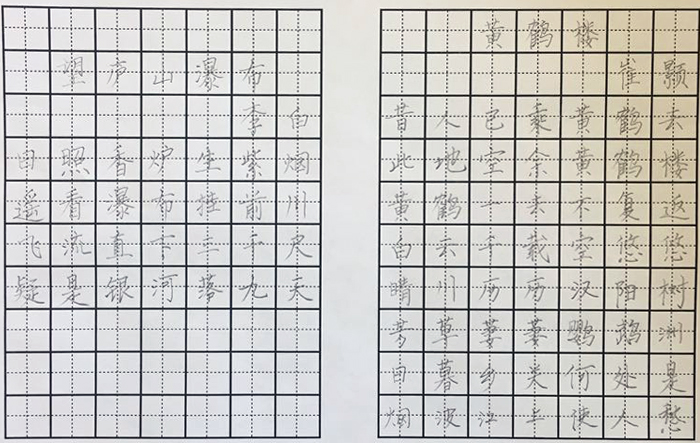 望庐山瀑布
李白
日照香炉生紫烟
遥看瀑布挂前川
飞流直下三千尺
疑是银河落九天
黄鹤楼
崔颢
昔人已乘黄鹤去
此地空余黄鹤楼
黄鹤一去不复返
白云千载空悠悠
晴川历历汉阳树
芳草萋萋鹦鹉洲
日暮乡关何处是
烟波江上使人愁